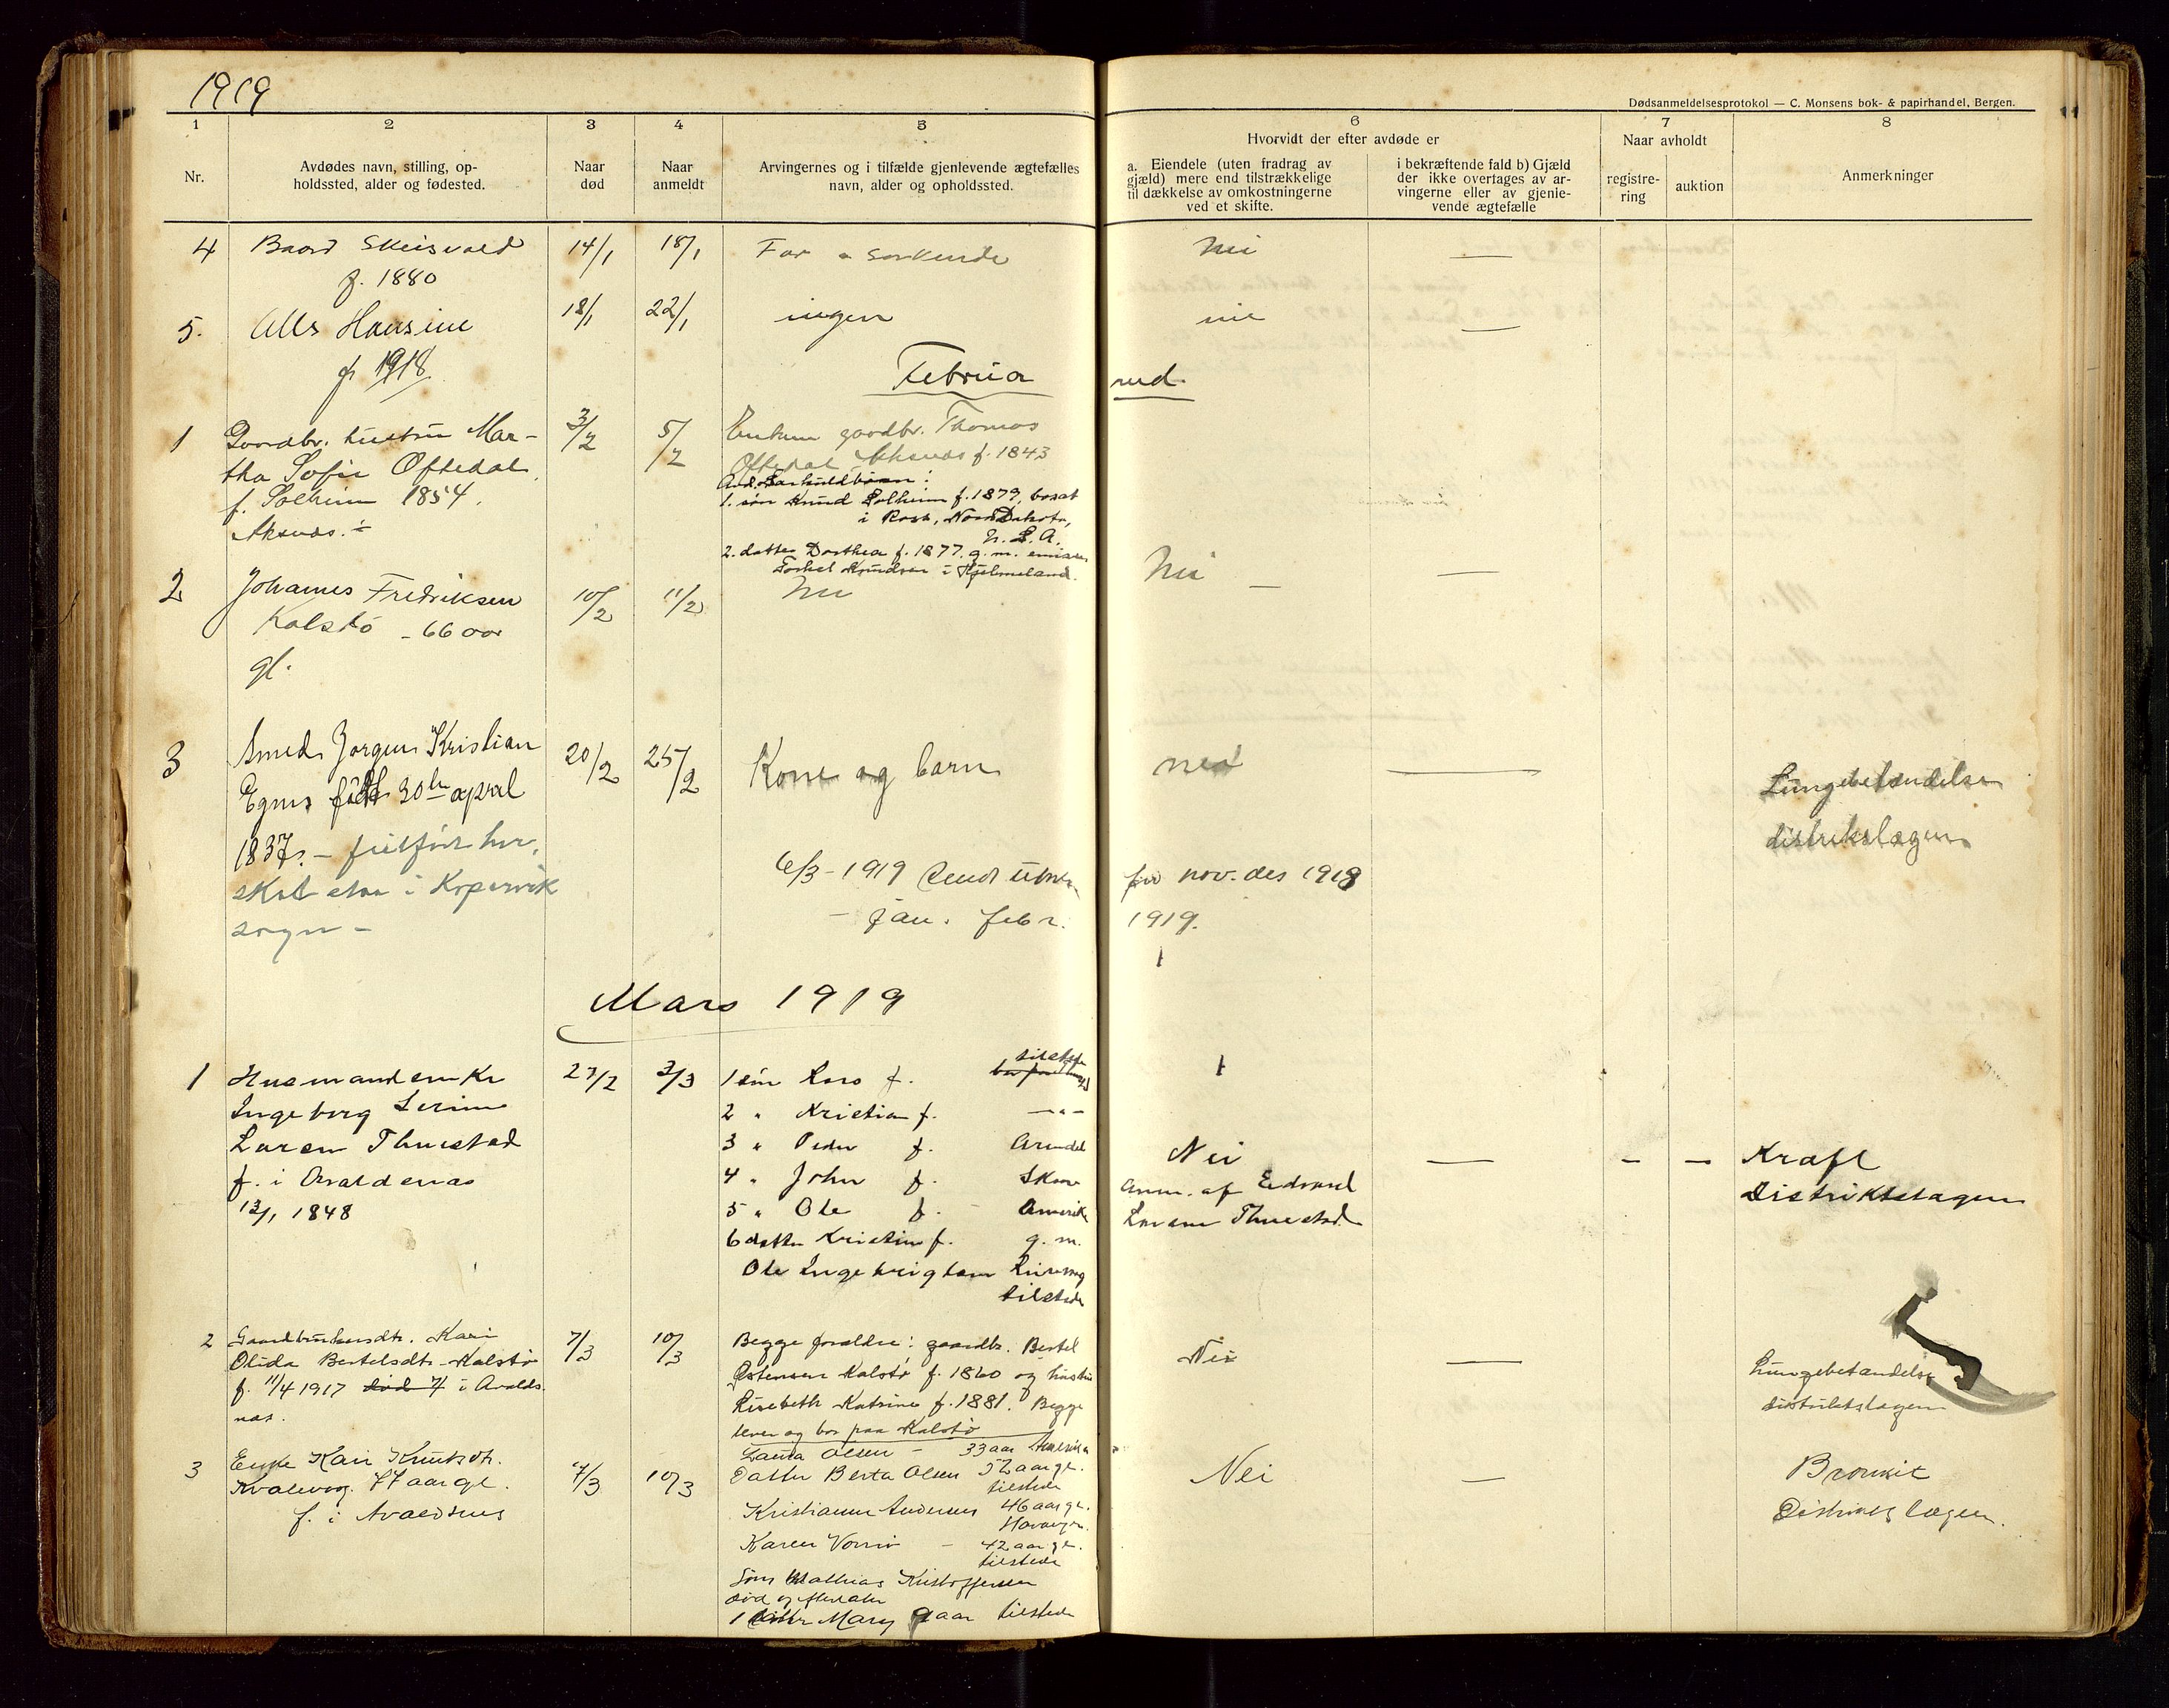 1919
Dødsanmeldelsesprotokol — C. Monsens bok- & papirhandel, Bergen.
1 2 3 4 5 6 7 8
Nr.
Avdødes navn, stilling, op-
holdssted, alder og fødested.
Naar
død
Naar
anmeldt
Arvingernes og i tilfælde gjenlevende ægtefælles
navn, alder og opholdssted.
Hvorvidt der efter avdøde er
a. Eiendele (uten fradrag av
gjæld) mere end tilstrækkelige
til dækkelse av omkostningerne
ved et skifte.
i bekræftende fald b) Gjæld
der ikke overtages av ar-
vingerne eller av gjenle-
vende ægtefælle
Naar avholdt
registre-
ring
auktion
Anmerkninger
4 Baard 14/1 18/1 Far nei —
f. 1880
5. Hansine 18/1 22/1 ingen nei —
f 1918
Februa rud.
1 Gaardbr. hustru Mar- 3/2 5/2
tha Sofie Oftedal
f. Solheim 1854.
Enkem gaardbr. Thomas
Oftedal f. 1843
1. søn Knud Solheim f. 1879, bosat
i Ross, Nord Dakota,
2. datter Dorthea f. 1877. g. m.
Knudsen i Hjelmeland.
2 Johannes Fredriksen 10/2 11/2 Nei Nei — —
Kalstø - 66 aar
gl.
3 Smed Jørgen Kristian 20/2 25/2 Kone og barn nei —
Egnes født 30te april
1837. -
skal i Kopervik
sogn -
Lungebetændelse
distriktslægen
6/3 - 1919 Sendt nov. des 1918
- jan. febr. 1919.
Mars 1919
1 Husmandsenke 27/2 3/3
Ingeborg Serine
Larsen Thuestad
f. i Avaldsnæs
13/1 1848
1 søn Lars f. tilstede
2 " Kristian f. — " —
3 " Peder f. Arendal
4 " John f.
5 " Ole f. - Amerika
6 datter Kristine f. g. m.
Ole Ingebrigtsen
tilstede
Nei — — —
anm. af Edvard
Larsen Thuestad
Kræft
Distriktslægen
2 Gaardbrukersdtr. Kari 7/3 10/3
Olida Bertelsdtr. Kalstø
f. 11/4 1917 død 7/ i Avalds
næs.
Begge forældre: gaardbr. Bertel
Østensen Kalstø f. 1860 og hustru
Lisebeth Katrine f. 1881. Begge
lever og bor paa Kalstø
Nei —
Lungebetændelse
distriktslægen
3 Enke Kari Knutsdtr. 7/3 10/3
Kvalevag. 77 aar gl.
f. i Avaldsnes
Laura Olsen - 33 aar Amerika
Datter Berta Olsen 52 aar gl.
tilstede
Kristianne Andersen 46 aar gl.
Karen - 42 aar gl.
tilstede
Søn Mathias Kristoffersen
død og efterlater
1 datter Mary 9 aar tilstede
Nei —
Bronkit
Distriktslægen.